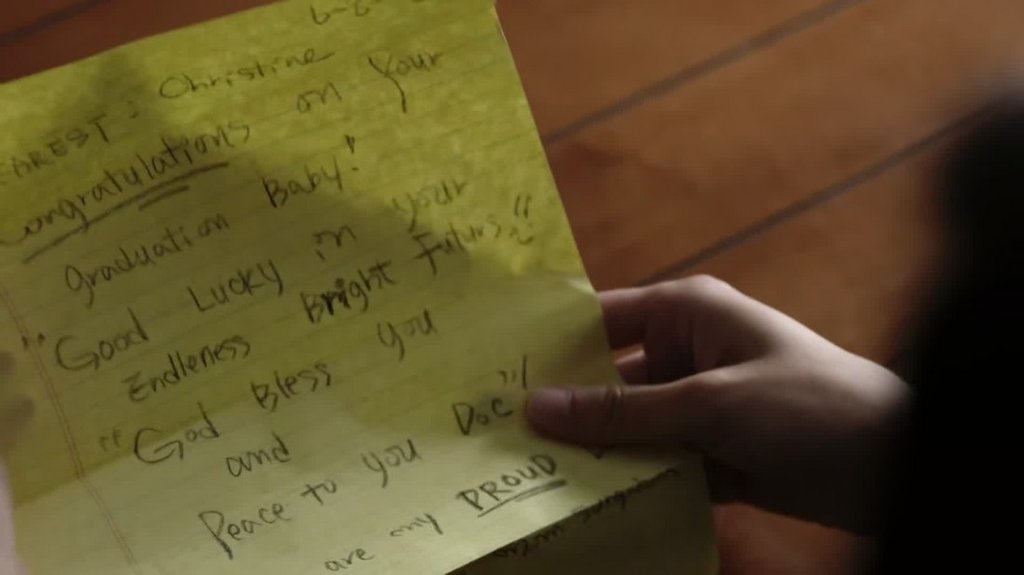 6-6-
AREST: Christine
Congratulations on Your
graduation Baby!"
"Good Lucky in your
Endleness Bright Futurs"
"God Bless you
and
Peace to you Doc"!
are my PROUD